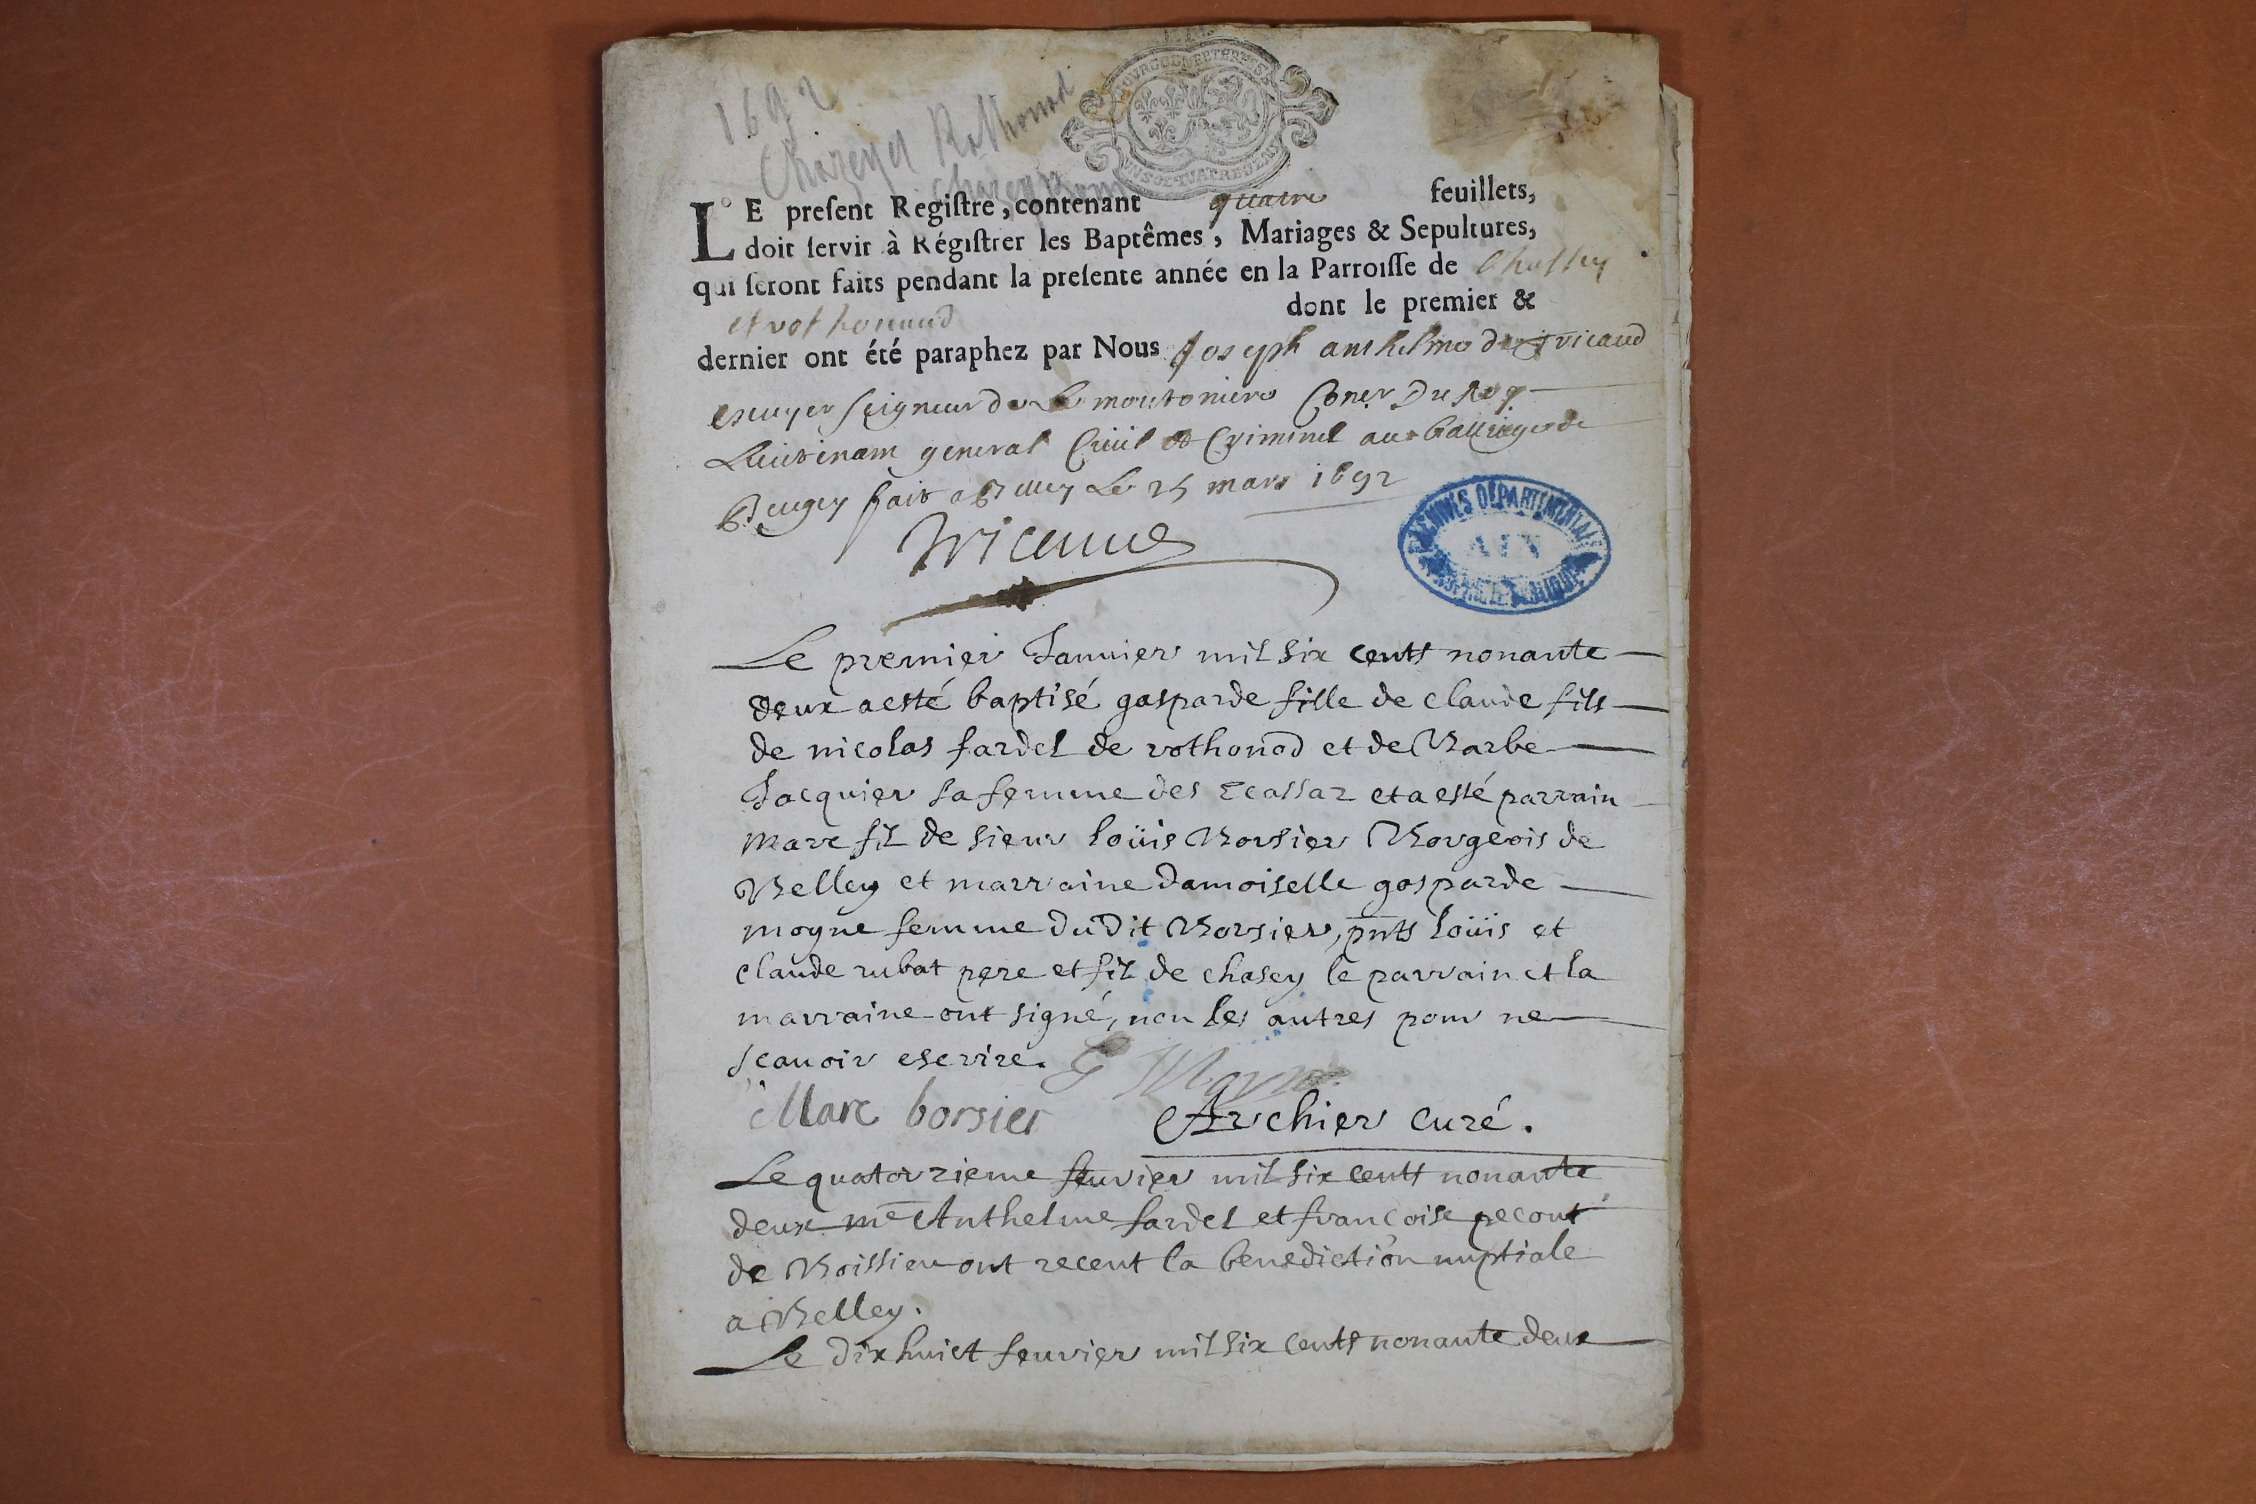 1692
Chazey et Rothonod
LE present Registre, contenant quatre feuillets,
doit servir à Régistrer les Baptêmes, Mariages & Sepultures,
qui seront faits pendant la presente année en la Parroisse de Chassey
et rothonnod dont le premier &
dernier ont été paraphez par Nous Joseph anthelme de tricaud
escuyer seigneur de la moutoniere Coner Du Roy
Lieutenam general Civil et Criminel au balliage de
Beugey fait a Belley Le 25 mars 1692
Tricaud
ARCHIVES DEPARTEMENTALES
AIN
Le premier Januier mil six cents nonante
deux a esté baptisé gasparde fille de claude fils
de nicolas fardel de rothonod et de Barbe
Jacquier sa femme des Ecassaz et a esté parrain
marc fil de sieur loüis Borsier Borgeois de
Belley et marraine damoiselle gasparde
moyne femme du dit Borsier, pnts loüis et
claude rubat pere et fil de chasey le parrain et la
marraine ont signé, non les autres pour ne
scauoir escrire. G Moyne
Marc borsier Archier curé.
Le quatorzieme feuvier mil six cents nonante
deux me Anthelme fardel et françoise pecout
de Boissieu ont receut la benediction nuptiale
a Belley.
Le dixhuict feuvier mil six cents nonante deux